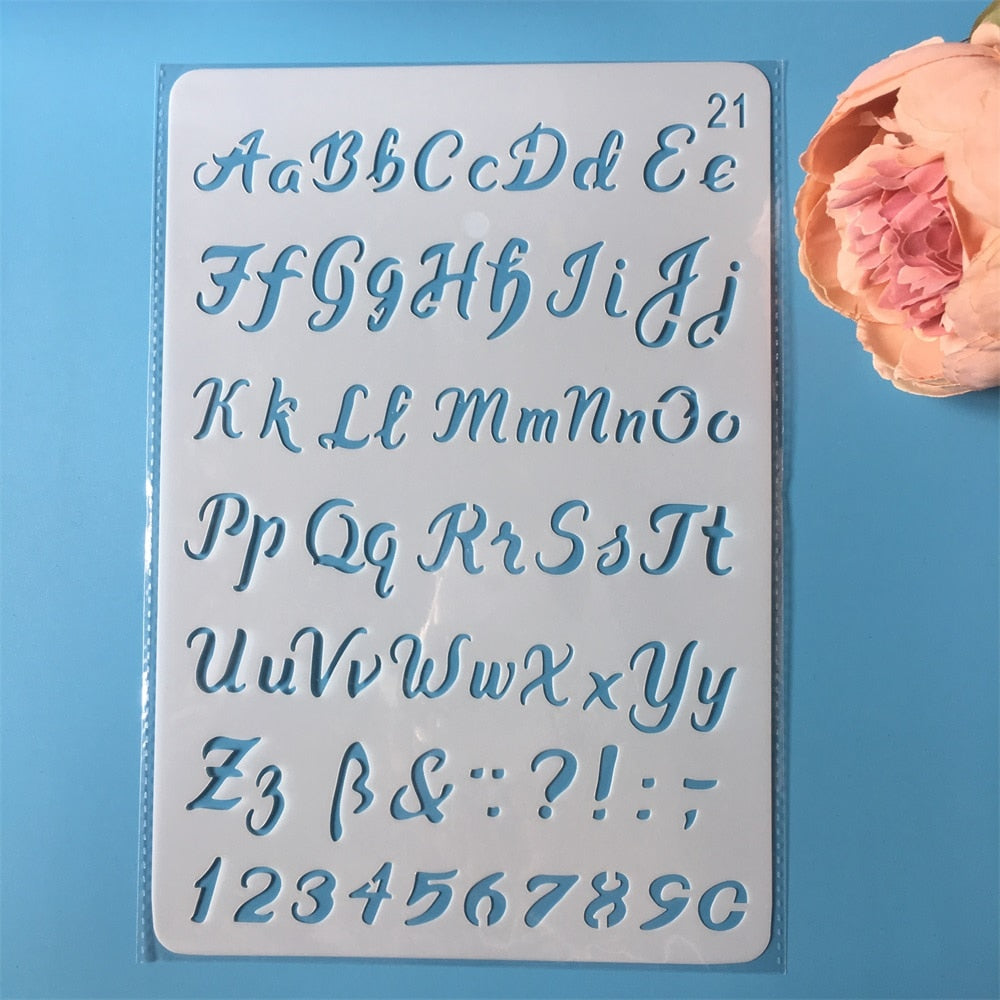 21
Aa Bb Cc Dd Ee
Ff Gg Hh Ii Jj
Kk Ll Mm Nn Oo
Pp Qq Rr Ss Tt
Uu Vv Ww Xx Yy
Zz ß & :: ? ! : - ,
1234567890